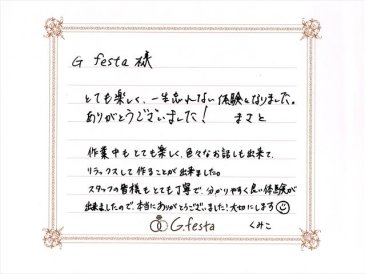 G festa 様
とても楽しく、一生忘れない体験となりました。
ありがとうございました! まさと
作業中もとても楽しく、色々なお話しも出来て、
リラックスして作ることが出来ました。
スタッフの皆様もとても丁寧で、分かりやすく良い体験が
出来ましたので、本当にありがとうございました!大切にします
G.festa
くみこ